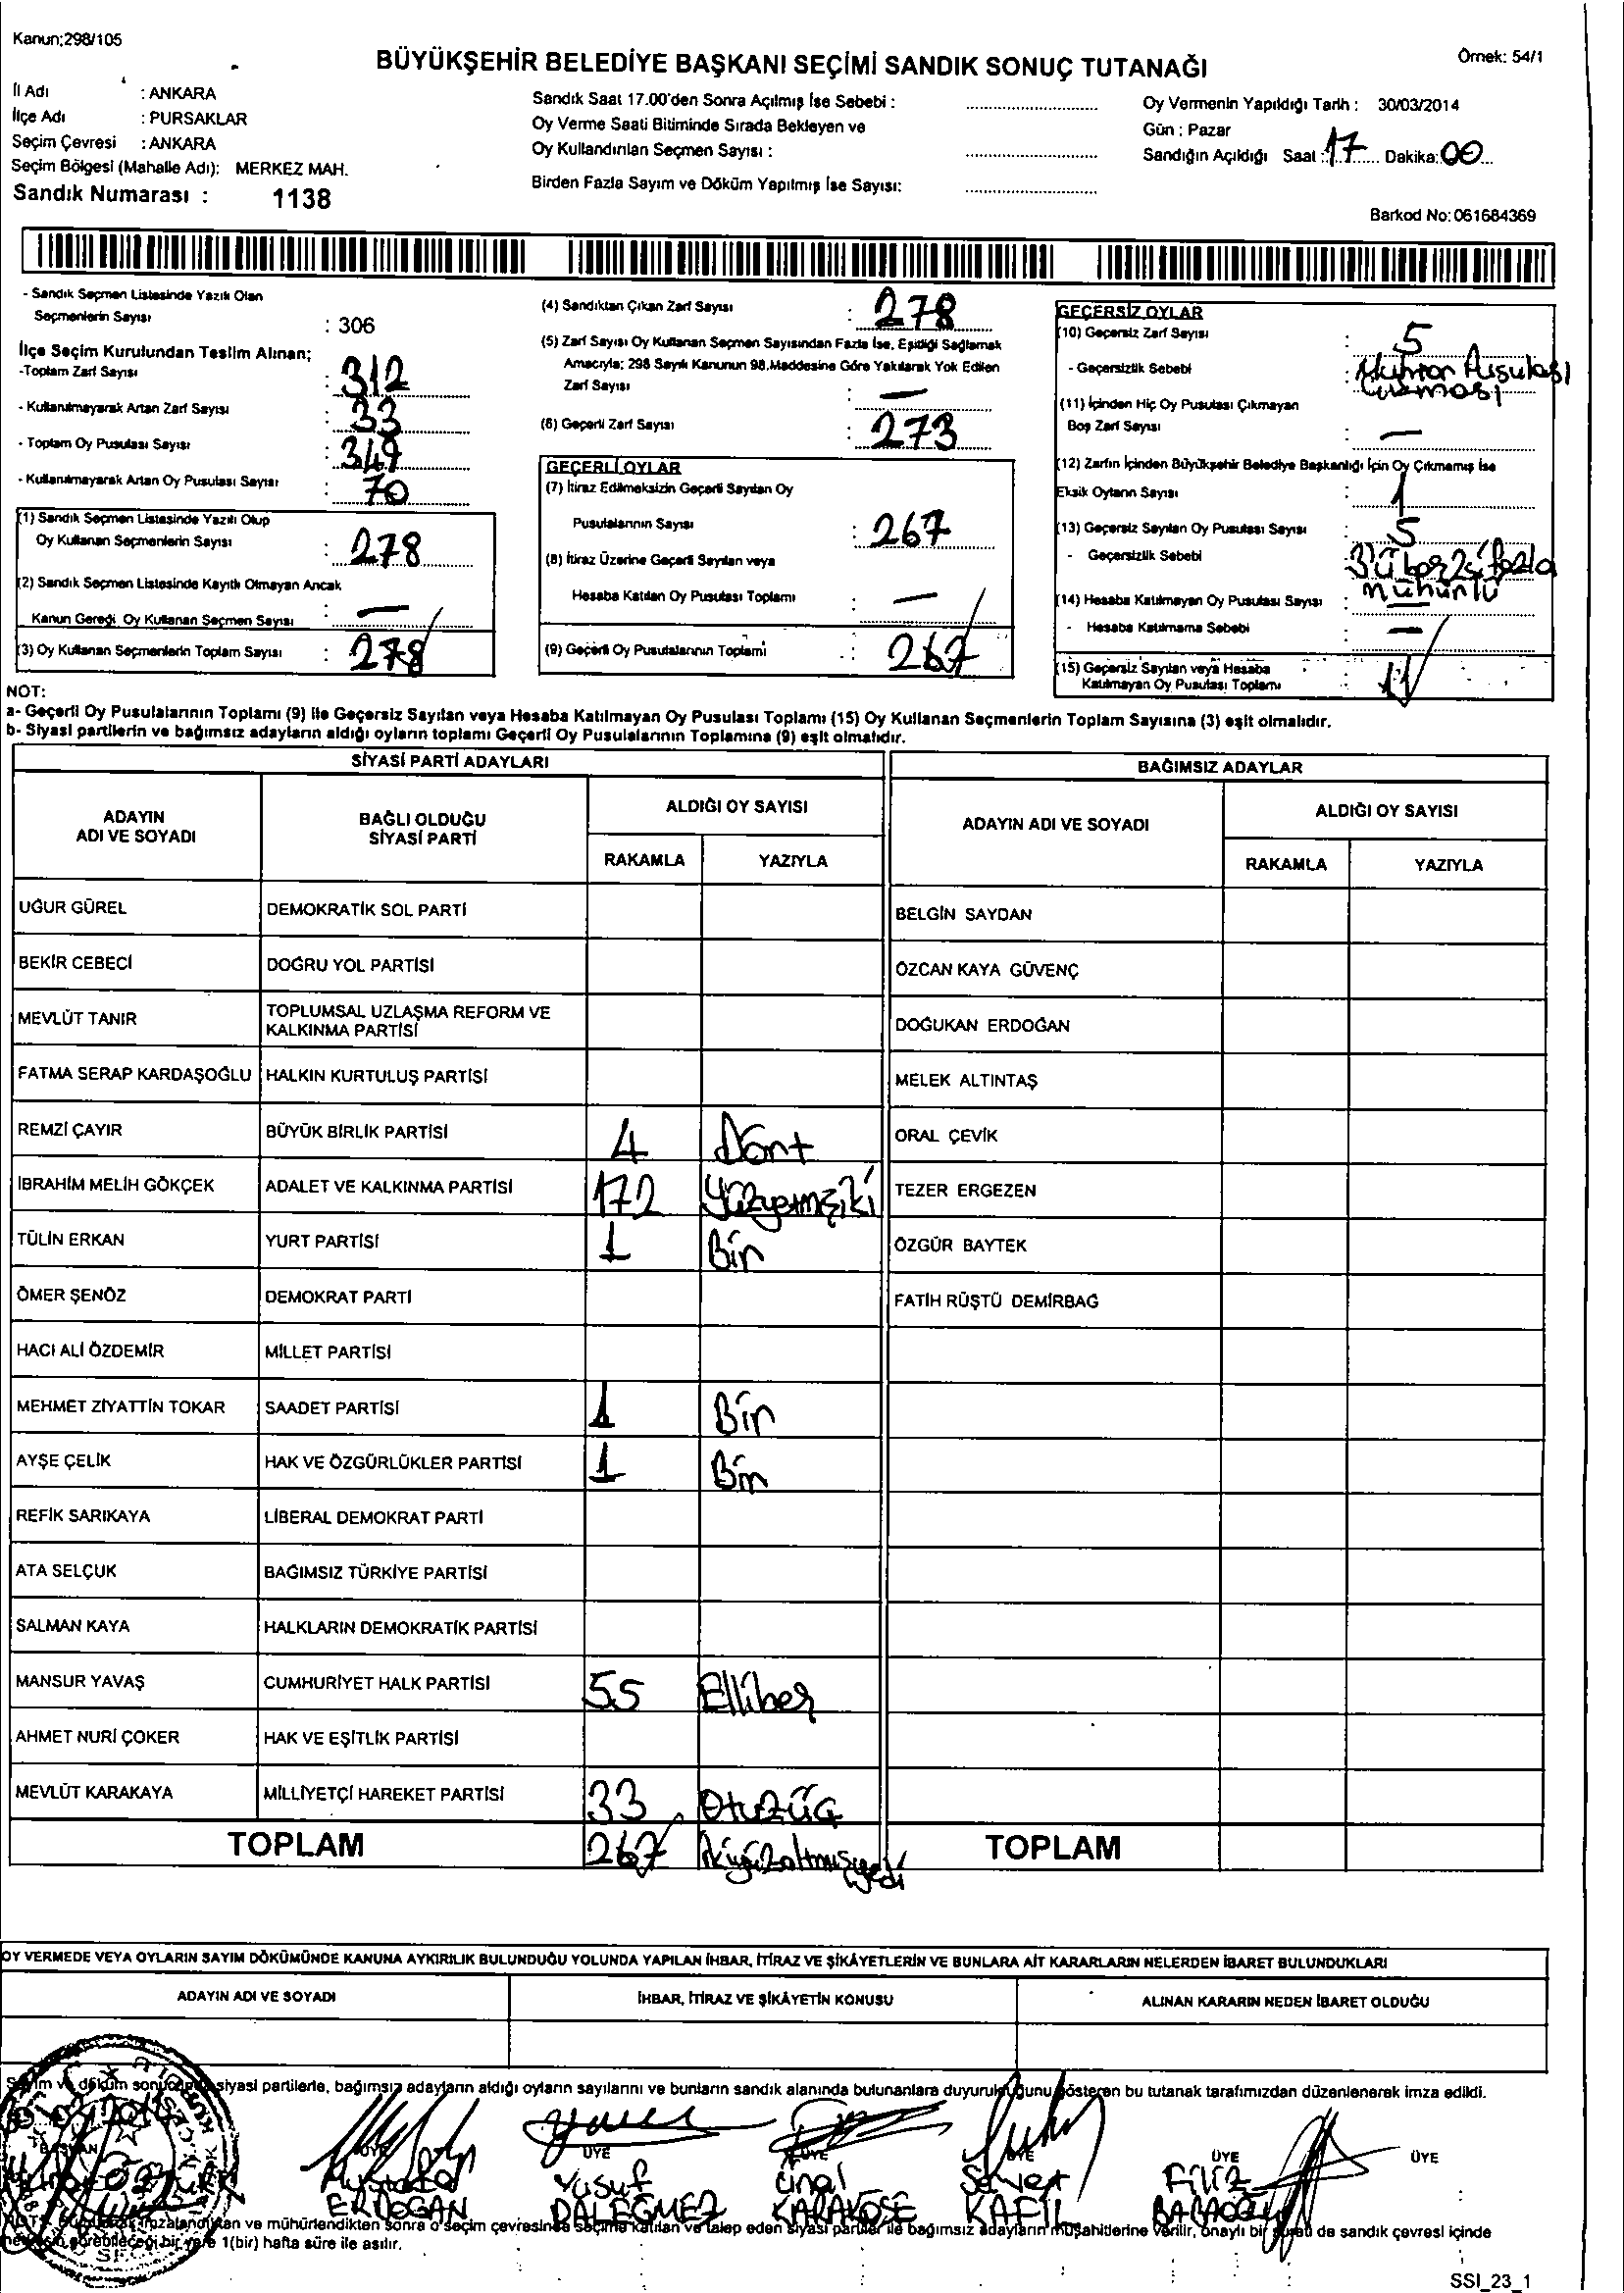 Kanun;298/105
BÜYÜKŞEHİR BELEDİYE BAŞKANI SEÇİMİ SANDIK SONUÇ TUTANAĞI
Örnek: 54/1
İl Adı : ANKARA
İlçe Adı : PURSAKLAR
Seçim Çevresi : ANKARA
Seçim Bölgesi (Mahalle Adı): MERKEZ MAH.
Sandık Numarası : 1138
Sandık Saat 17.00'den Sonra Açılmış İse Sebebi :
Oy Verme Saati Bitiminde Sırada Bekleyen ve
Oy Kullandırılan Seçmen Sayısı :
Birden Fazla Sayım ve Döküm Yapılmış İse Sayısı:
Oy Vermenin Yapıldığı Tarih : 30/03/2014
Gün : Pazar
Sandığın Açıldığı Saat : 17 Dakika: 00
Barkod No: 061684369
- Sandık Seçmen Listesinde Yazılı Olan
Seçmenlerin Sayısı : 306
İlçe Seçim Kurulundan Teslim Alınan;
-Toplam Zarf Sayısı : 312
- Kullanılmayarak Artan Zarf Sayısı : 33
- Toplam Oy Pusulası Sayısı : 349
- Kullanılmayarak Artan Oy Pusulası Sayısı : 70
(1) Sandık Seçmen Listesinde Yazılı Olup
Oy Kullanan Seçmenlerin Sayısı : 278
(2) Sandık Seçmen Listesinde Kayıtlı Olmayan Ancak
Kanun Gereği Oy Kullanan Seçmen Sayısı : —
(3) Oy Kullanan Seçmenlerin Toplam Sayısı : 278
(4) Sandıktan Çıkan Zarf Sayısı : 278
(5) Zarf Sayısı Oy Kullanan Seçmen Sayısından Fazla İse, Eşitliği Sağlamak
Amacıyla; 298 Sayılı Kanunun 98.Maddesine Göre Yakılarak Yok Edilen
Zarf Sayısı : —
(6) Geçerli Zarf Sayısı : 273
GEÇERLİ OYLAR
(7) İtiraz Edilmeksizin Geçerli Sayılan Oy
Pusulalarının Sayısı : 267
(8) İtiraz Üzerine Geçerli Sayılan veya
Hesaba Katılan Oy Pusulası Toplamı : —
(9) Geçerli Oy Pusulalarının Toplamı : 267
GEÇERSİZ OYLAR
(10) Geçersiz Zarf Sayısı : 5
- Geçersizlik Sebebi : Muhtar Pusulası
çıkması
(11) İçinden Hiç Oy Pusulası Çıkmayan
Boş Zarf Sayısı : —
(12) Zarfın İçinden Büyükşehir Belediye Başkanlığı İçin Oy Çıkmamış İse
Eksik Oyların Sayısı : 1
(13) Geçersiz Sayılan Oy Pusulası Sayısı : 5
- Geçersizlik Sebebi : fazla
mühürlü
(14) Hesaba Katılmayan Oy Pusulası Sayısı : —
- Hesaba Katılmama Sebebi : —
(15) Geçersiz Sayılan veya Hesaba
Katılmayan Oy Pusulası Toplamı : 11
NOT:
a- Geçerli Oy Pusulalarının Toplamı (9) ile Geçersiz Sayılan veya Hesaba Katılmayan Oy Pusulası Toplamı (15) Oy Kullanan Seçmenlerin Toplam Sayısına (3) eşit olmalıdır.
b- Siyasi partilerin ve bağımsız adayların aldığı oyların toplamı Geçerli Oy Pusulalarının Toplamına (9) eşit olmalıdır.
SİYASİ PARTİ ADAYLARI
ADAYIN ADI VE SOYADI BAĞLI OLDUĞU SİYASİ PARTİ ALDIĞI OY SAYISI
RAKAMLA YAZIYLA
UĞUR GÜREL DEMOKRATİK SOL PARTİ
BEKİR CEBECİ DOĞRU YOL PARTİSİ
MEVLÜT TANIR TOPLUMSAL UZLAŞMA REFORM VE
KALKINMA PARTİSİ
FATMA SERAP KARDAŞOĞLU HALKIN KURTULUŞ PARTİSİ
REMZİ ÇAYIR BÜYÜK BİRLİK PARTİSİ 4 Dört
İBRAHİM MELİH GÖKÇEK ADALET VE KALKINMA PARTİSİ 172 Yüzyetmişiki
TÜLİN ERKAN YURT PARTİSİ 1 Bir
ÖMER ŞENÖZ DEMOKRAT PARTİ
HACI ALİ ÖZDEMİR MİLLET PARTİSİ
MEHMET ZİYATTİN TOKAR SAADET PARTİSİ 1 Bir
AYŞE ÇELİK HAK VE ÖZGÜRLÜKLER PARTİSİ 1 Bir
REFİK SARIKAYA LİBERAL DEMOKRAT PARTİ
ATA SELÇUK BAĞIMSIZ TÜRKİYE PARTİSİ
SALMAN KAYA HALKLARIN DEMOKRATİK PARTİSİ
MANSUR YAVAŞ CUMHURİYET HALK PARTİSİ 55 Ellibeş
AHMET NURİ ÇOKER HAK VE EŞİTLİK PARTİSİ
MEVLÜT KARAKAYA MİLLİYETÇİ HAREKET PARTİSİ 33 Otuzüç
TOPLAM 267 ikiyüzaltmışyedi
BAĞIMSIZ ADAYLAR
ADAYIN ADI VE SOYADI ALDIĞI OY SAYISI
RAKAMLA YAZIYLA
BELGİN SAYDAN
ÖZCAN KAYA GÜVENÇ
DOĞUKAN ERDOĞAN
MELEK ALTINTAŞ
ORAL ÇEVİK
TEZER ERGEZEN
ÖZGÜR BAYTEK
FATİH RÜŞTÜ DEMİRBAĞ
TOPLAM
OY VERMEDE VEYA OYLARIN SAYIM DÖKÜMÜNDE KANUNA AYKIRILIK BULUNDUĞU YOLUNDA YAPILAN İHBAR, İTİRAZ VE ŞİKÂYETLERİN VE BUNLARA AİT KARARLARIN NELERDEN İBARET BULUNDUKLARI
ADAYIN ADI VE SOYADI İHBAR, İTİRAZ VE ŞİKÂYETİN KONUSU ALINAN KARARIN NEDEN İBARET OLDUĞU
Sayım ve döküm siyasi partilerle, bağımsız adayların aldığı oyların sayılarını ve bunların sandık alanında bulunanlara duyurulduğunu gösteren bu tutanak tarafımızdan düzenlenerek imza edildi.
BAŞKAN ÜYE ÜYE ÜYE ÜYE ÜYE ÜYE
Mustafa Yusuf Ünal Filiz
ERDOĞAN KARAKÖSE KAFİL
imzalandıktan ve mühürlendikten sonra o seçim çevresinde seçime katılan ve talep eden siyasi partiler ile bağımsız adayların müşahitlerine verilir, onaylı bir sureti de sandık çevresi içinde
görebileceği bir yere 1(bir) hafta süre ile asılır.
SSI_23_1